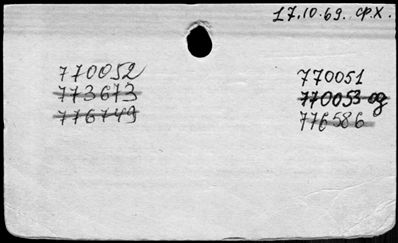 17.10.69. ф.Х.
770052
773673
776749
770051
770053 од
776586